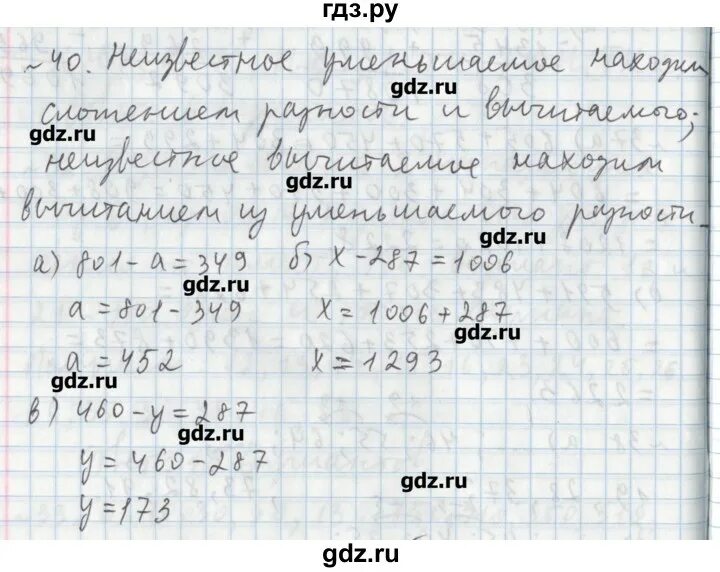 гдз.ру
~40. Неизвестное уменьшаемое находим
gdz.ru
сложением разности и вычитаемого;
gdz.ru
неизвестное вычитаемое находим
gdz.ru
вычитанием из уменьшаемого разности.
gdz.ru
а) 801-а=349 б) х-287=1006
gdz.ru
а=801-349 х=1006+287
gdz.ru
а=452 х=1293
gdz.ru
в) 460-у=287
gdz.ru
у=460-287
gdz.ru
у=173
gdz.ru